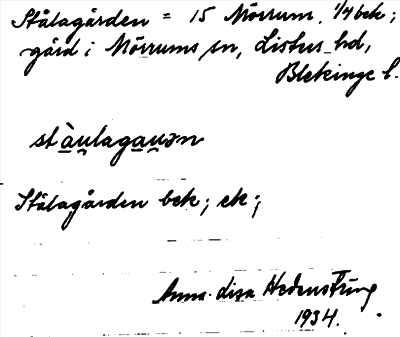 Stålagården = 15 Mörrum, 1/4 bek;
gård i Mörrums sn, Listers hd,
Blekinge l.
stàu̯lagau̯ən
Stålagården bek; ek;
Anna-Lisa Hedenström
1934.